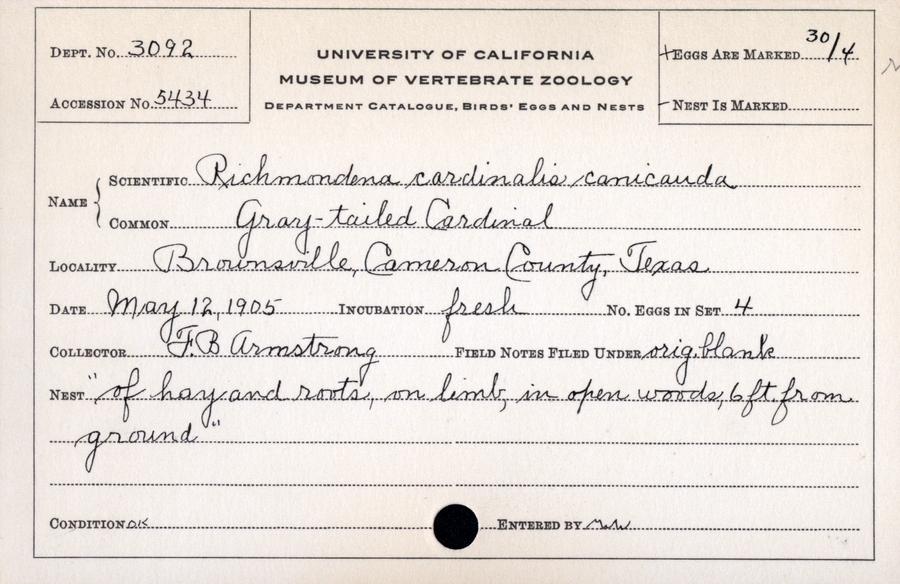 DEPT. NO. 3092
ACCESSION NO. 5434
UNIVERSITY OF CALIFORNIA
MUSEUM OF VERTEBRATE ZOOLOGY
DEPARTMENT CATALOGUE, BIRDS' EGGS AND NESTS
+EGGS ARE MARKED 30/4
– NEST IS MARKED
NAME
SCIENTIFIC Richmondena cardinalis canicauda
COMMON Gray-tailed Cardinal
LOCALITY Brownsville, Cameron County, Texas
DATE May 12, 1905 INCUBATION fresh NO. EGGS IN SET 4
COLLECTOR F.B Armstrong FIELD NOTES FILED UNDER orig. blank
NEST "of hay and roots, on limb, in open woods, 6 ft. from
ground"
CONDITION OK ENTERED BY